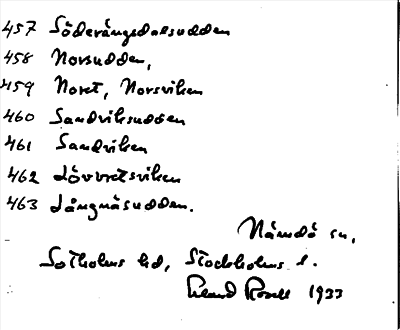 457 Söderängsdalsudden
458 Norsudden,
459 Noret, Norsviken
460 Sandviksudden
461 Sandviken
462 Lövvretsviken
463 Långnäsudden.
Nämdö sn,
Sotholms hd, Stockholms l.
Erland Rosell 1933